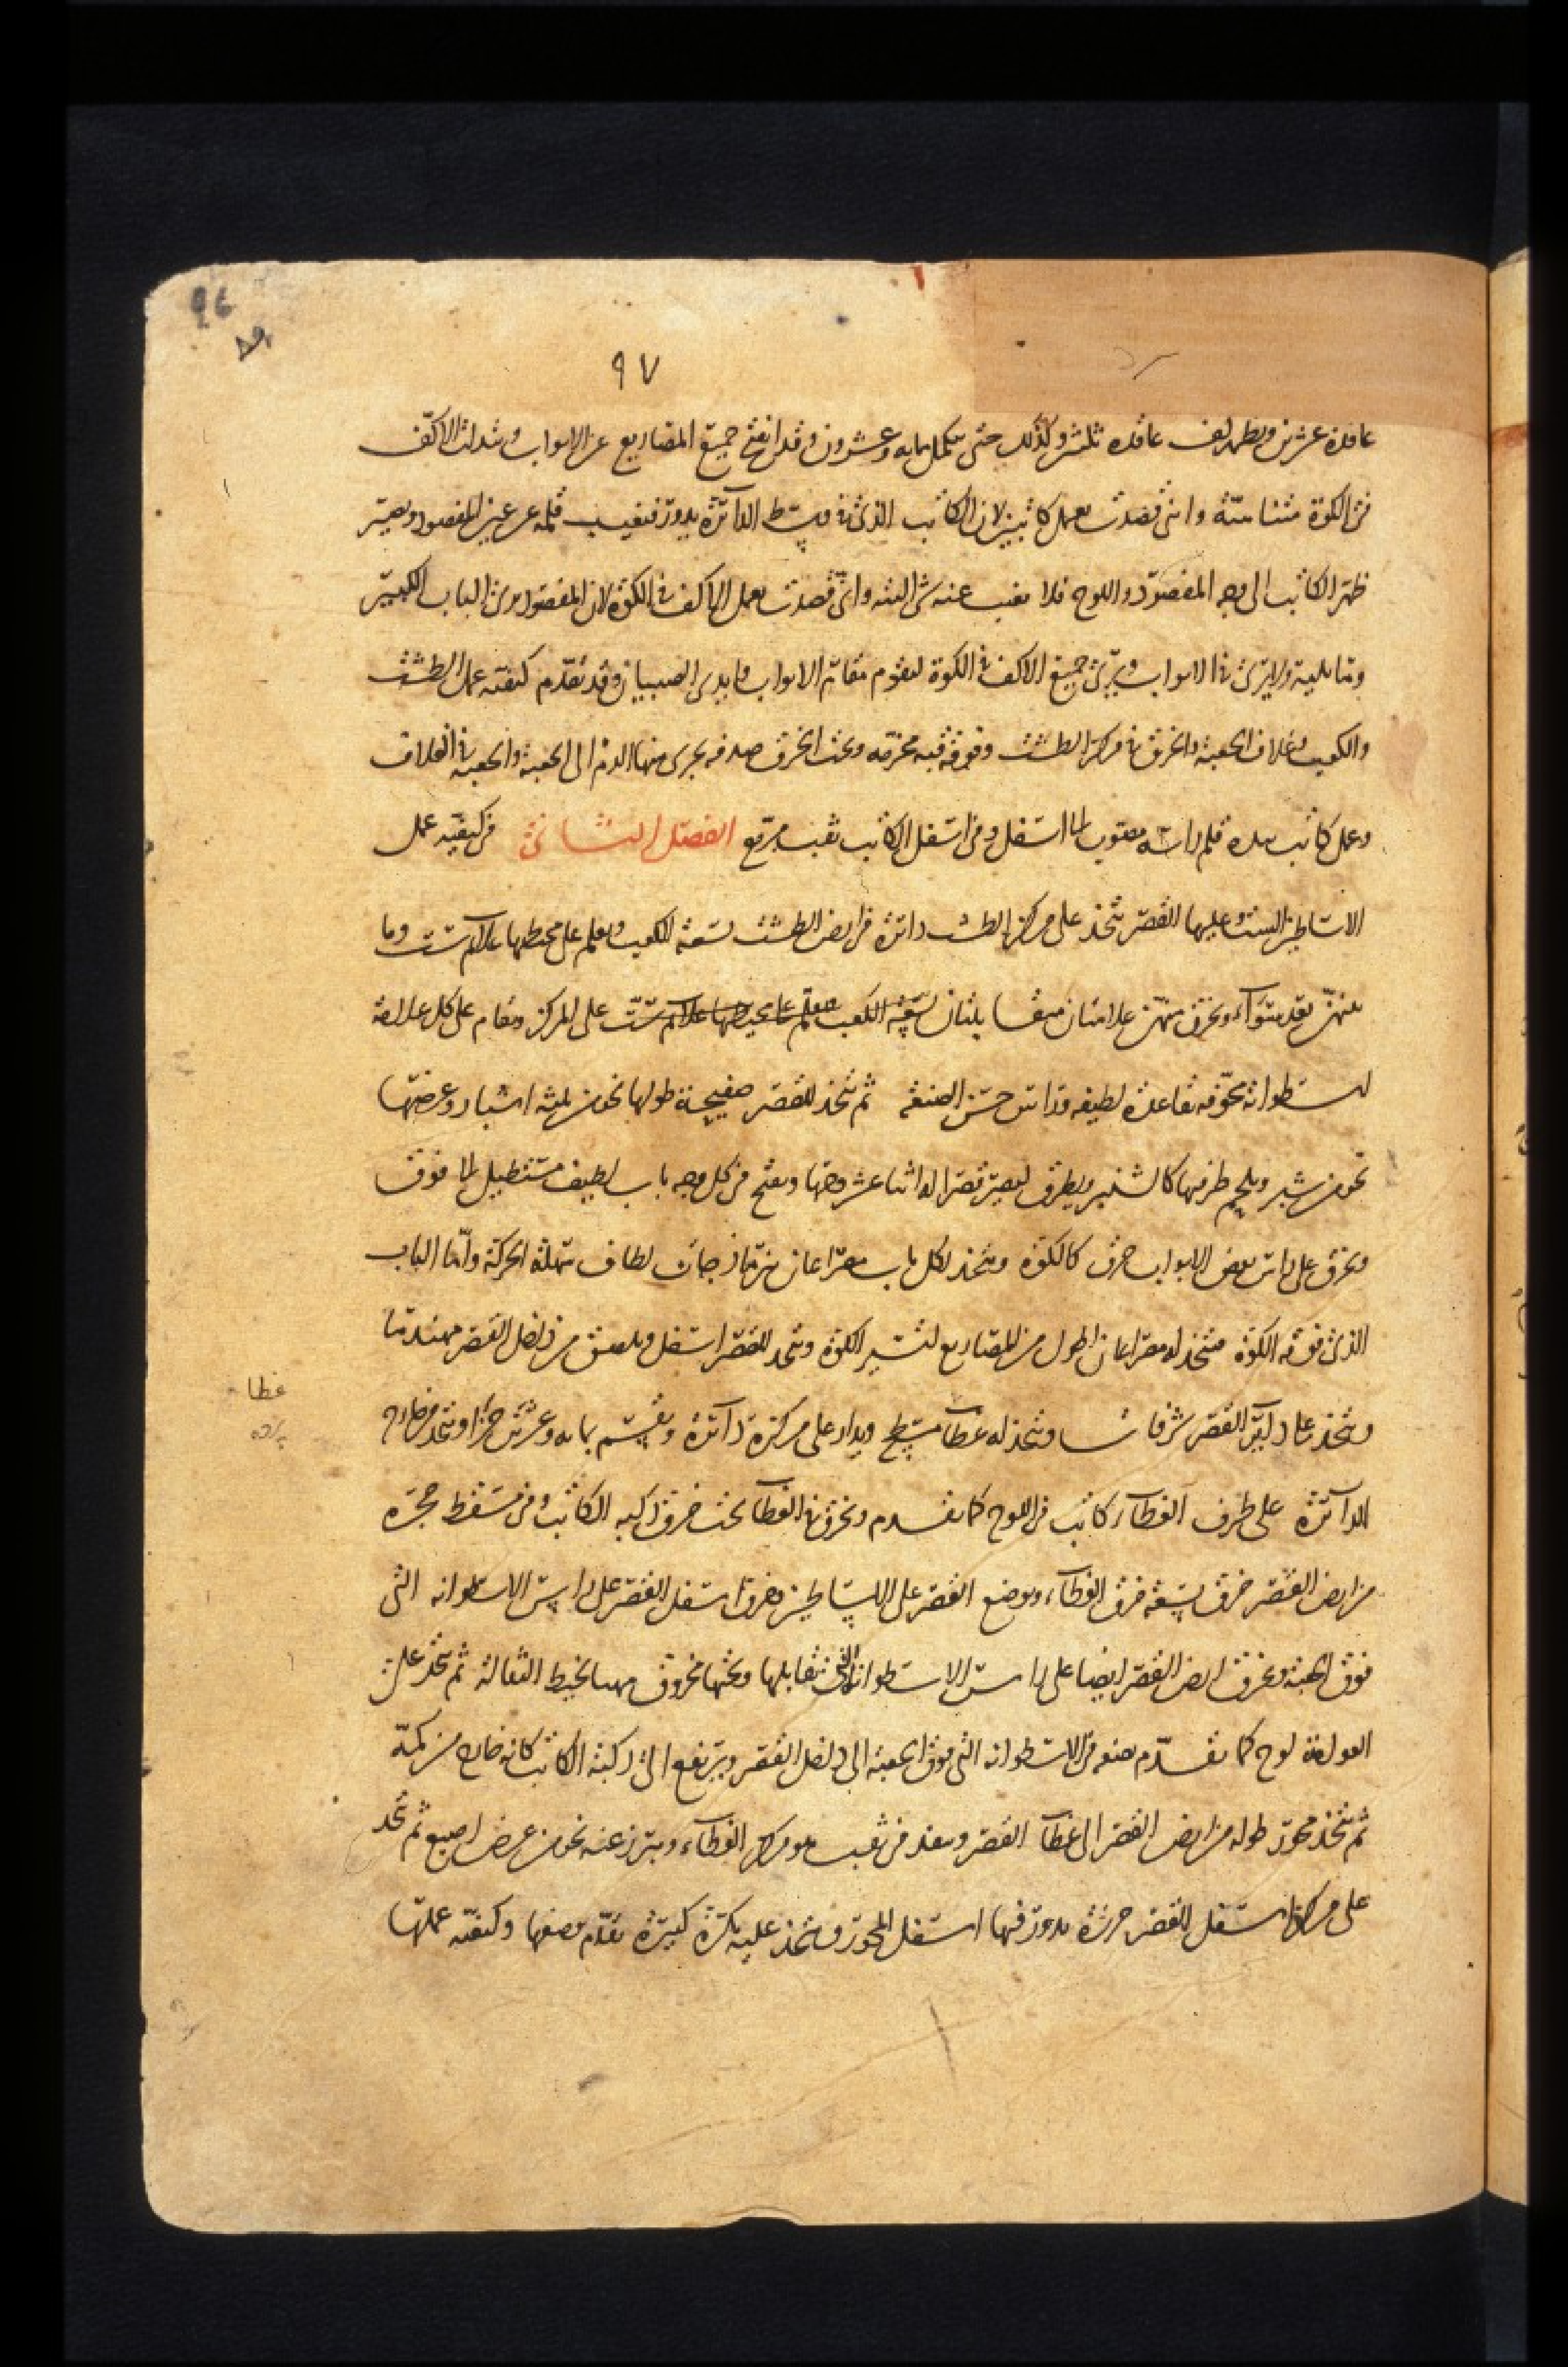 ٩٧
عاقدة عشرين ويظهر كف عاقده ثلثين وكذلك حتى تكمل مايه وعشرون وقد انفتح جميع المصاريع عن الابواب وشالت الاكف
من الكوة متناسبة وانى قصدت بعمل كاتبين لان الكاتب الذى فى وسط الدائرة يدور فيغيب قلمه عن عين المفصود ويصير
ظهر الكاتب الى وجه المفصود واللوح فلا يغيب عنه شى البته وانى قصدت بعمل الاكف فى الكوة لان المفصود يرى الباب الكبير
وما يليه ولا يرى فى الابواب ويرى جميع الاكف فى الكوة ليقوم مقام الابواب وايدى الصبيان وقد تقدم كيفية عمل الطشت
والكعب وغلاف الجعبة والخرق فى مركز الطشت وفوقه قبه مخرمه وتحت الخرق صدفه يجرى منها الدم الى الجعبة والجعبة فى الغلاف
وعمل كاتب بيده قلم راسه مصوب الى اسفل وفى اسفل الكاتب ثقب مربع الفصل الثانى فى كيفية عمل
الاساطين الست وعليها القصر يتخذ على مركز الطشت دائرة فى ارض الطشت بسعة الكعب ويعلم على محيطها علائم ست وما
بينهن بعد سواء ويخرق منهن علامتان متقابلتان بسعة الكعب على المركز ويقام على كل علامة
اسطوانة مجوفه بقاعدة لطيفه وراس حسن الصنعه ثم يتخذ للقصر صفيحة طولها نحو من ثلثة اشبار وعرضها
نحو من شبر ويلحم طرفيها كالشنبر ويطرق ليصير قصرا له اثنا عشر وجها ويفتح فى كل وجه باب لطيف مستطيل الى فوق
ويخرق على راس بعض الابواب خرق كالكوة ويتخذ لكل باب مصراعان بنرماذجات لطاف سهلة الحركة واما الباب
الذى فوقه الكوة فيتخذ له مصراعان اطول من المصاريع لتستر الكوة ويتخذ للقصر اسفل ويلصق من داخل القصر مهندما
ويتخذ على داير القصر شرفات ويتخذ له غطاء مسطح ويدار على مركزه دائرة ويقسم بمايه وعشرين جزءا ويتخذ من خارج
غطا
الدائرة على طرف الغطاء كاتب فى اللوح كما تقدم ويخرق فى الغطاء تحت خرق ركبه الكاتب وفى مسقط حجره
من ارض القصر خرق بسعة خرق الغطاء ويوضع القصر على الاساطين وخرق اسفل القصر على راس الاسطوانه التى
فوق الجعبة ويخرق ارض القصر ايضا على راس الاسطوانة التى تقابلها وتحتها مخروق لخيط الثقالة ثم يتخذ على
العوامة لوح كما تقدم صنعه فى الاسطوانه التى فوق الجعبه الى داخل القصر ويرتفع الى ركبة الكاتب كانه خارج من كمه
ثم يتخذ محور طوله من ارض القصر الى غطاء القصر وينفذ فى ثقب هو مركز الغطاء ويبرز عنه نحو من عرض اصبع ثم يتخذ
على مركز اسفل القصر خرزة يدور فيها اسفل المحور ويتخذ عليه بكرة كبيرة تقدم وصفها وكيفية عملها